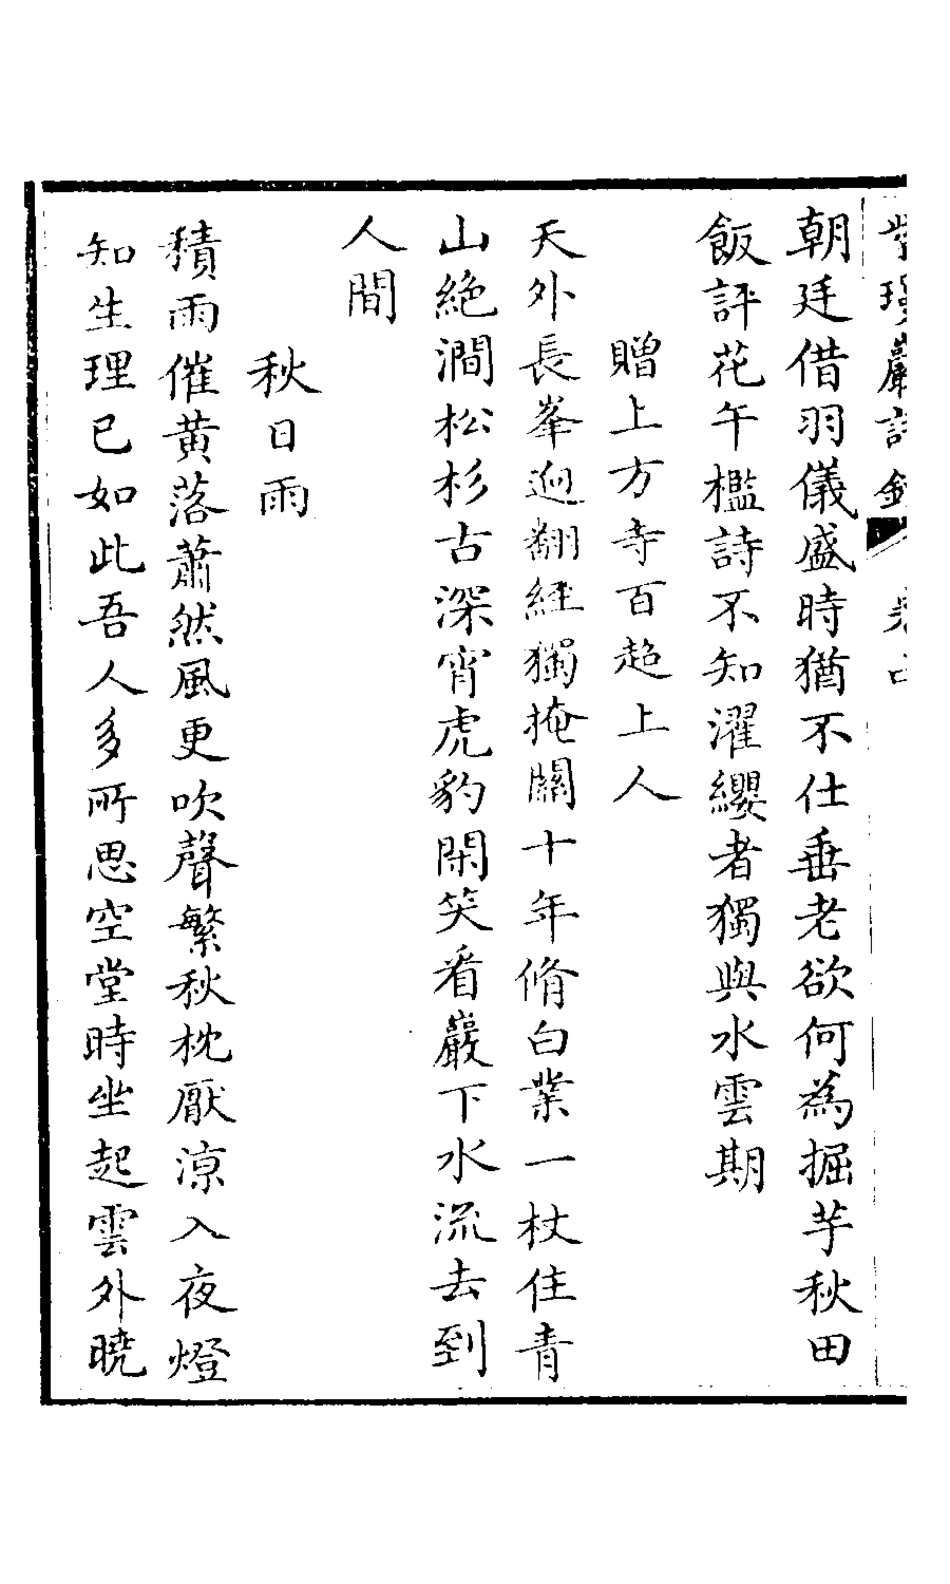 紫瓊巖詩鈔 卷中
朝廷借羽儀盛時猶不仕垂老欲何為掘芋秋田
飯評花午檻詩不知濯纓者獨與水雲期
贈上方寺百超上人
天外長峯迥翻經獨掩關十年脩白業一杖住青
山絶澗松杉古深宵虎豹閑笑看巖下水流去到
人間
秋日雨
積雨催黄落蕭然風更吹聲繁秋枕厭涼入夜燈
知生理已如此吾人多所思空堂時坐起雲外曉